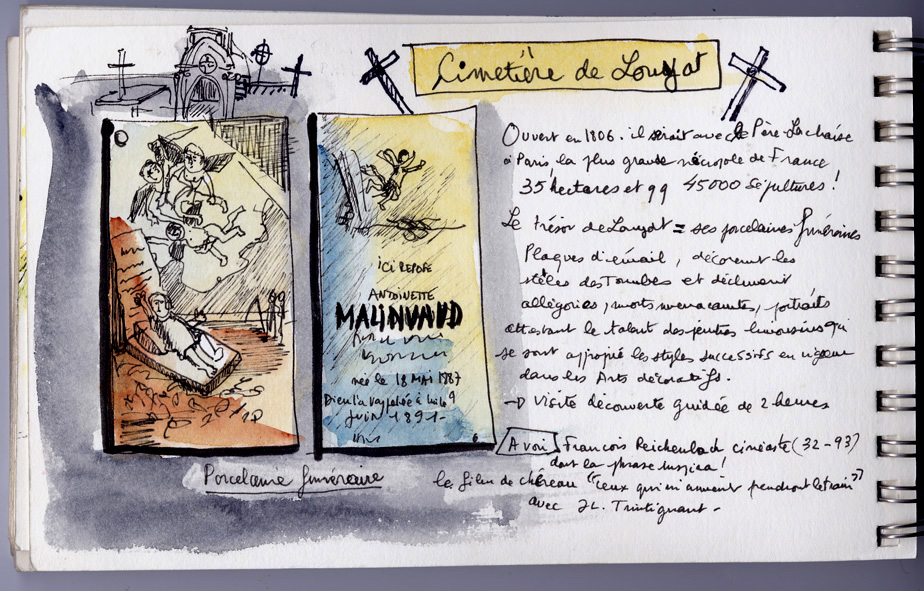 Cimetière de Louyat
Ouvert en 1806. il serait avec le Père Lachaise
à Paris la plus grande nécropole de France
35 hectares et qq 45000 sépultures !
Le trésor de Louyat = ses porcelaines funéraires
Plaques d'émail, décorent les
stèles des Tombes et déclinent
allégories, portraits
attestant le talent des peintres limousins qui
se sont approprié les styles successifs en vigueur
dans les Arts décoratifs.
→ Visite découverte guidée de 2 heures
A voir François Reichenbach cinéaste (32-93)
dont la phrase inspira !
le film de chéreau "Ceux qui m'aiment prendront le train"
avec JL. Trintignant -
ICI REPOSE
ANTOINETTE
MALINVAUD
née le 18 MAI 1887
Dieu l'a rappelée à lui le 9
JUIN 1891-
Porcelaine funéraire